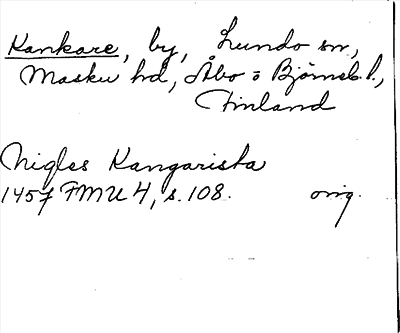 Kankare, by, Lundo sn,
Masku hd, Åbo o Björneb. l.,
Finland
Nigles Kangarista
1457 FMU 4, s. 108. orig.